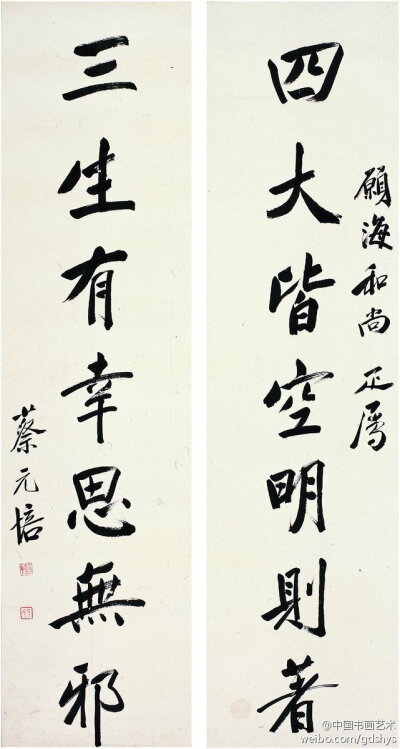 願海和尚正屬
四大皆空明則著
三生有幸思無邪
蔡元培
@中国书画艺术
weibo.com/gdshys